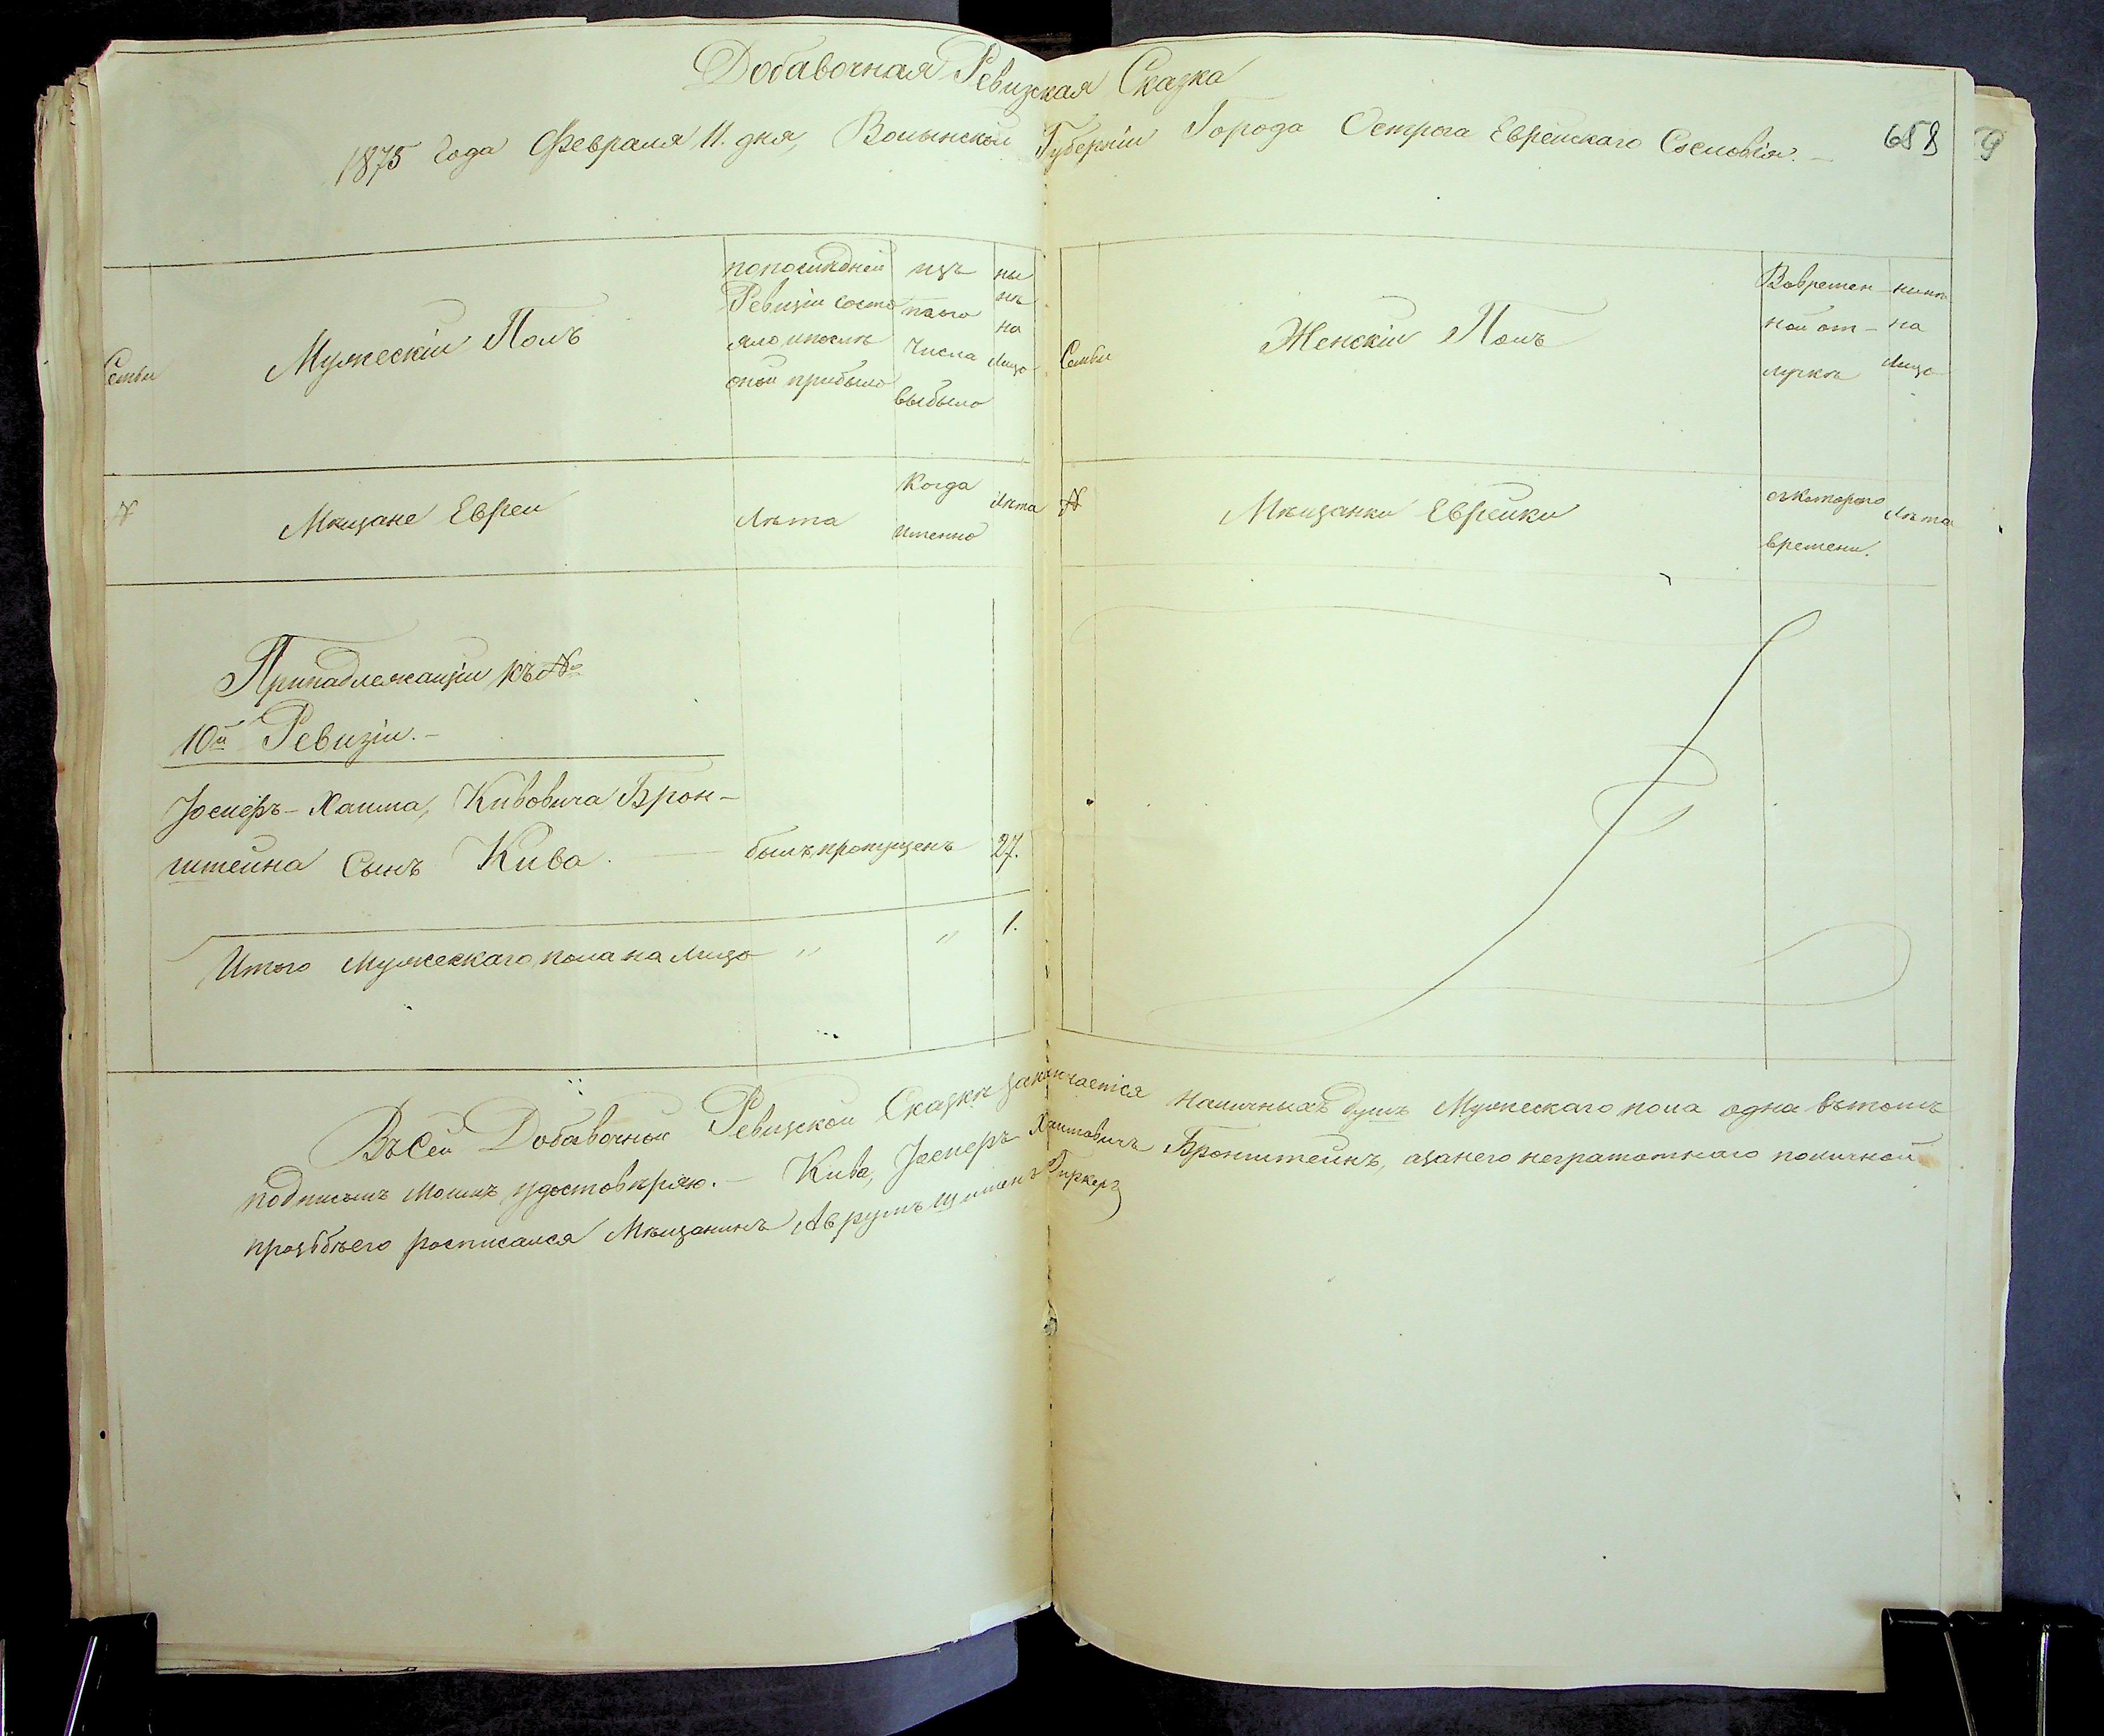 Добавочная Ревизская Сказка
1875 года Февраля 11. дня, Волынской Губерніи Города Острога Еврейскаго Сословія. — 658
Семьи
Мужескій Полъ
по последней
Ревизіи состо
яло и после
оной прибыло
изъ
того
числа
выбыло
ны
нѣ
на
лицо
Семьи
Женскій Полъ
Вовремен
ной от-
лучкѣ
нынѣ
на
лицо
№
Мѣщане Евреи
Лѣта
Когда
именно
Лѣта
№
Мѣщанки Еврейки
съ котораго
времени.
Лѣта
Принадлежащій къ №
10й Ревизіи. —
Іосифъ-Хаима, Кивовича Брон-
штейна Сынъ Кива. — былъ пропущенъ 27.
Итого мужескаго пола на лицо " " 1.
Въ сей Добавочной Ревизской Сказкѣ заключается наличныхъ душъ Мужескаго пола одна въ томъ
подписомъ моимъ удостовѣряю. — Кива, Іосифъ Хаимовичъ Бронштейнъ, а за него неграмотнаго по личной
прозьбѣ его росписался Мѣщанинъ Аврумъ